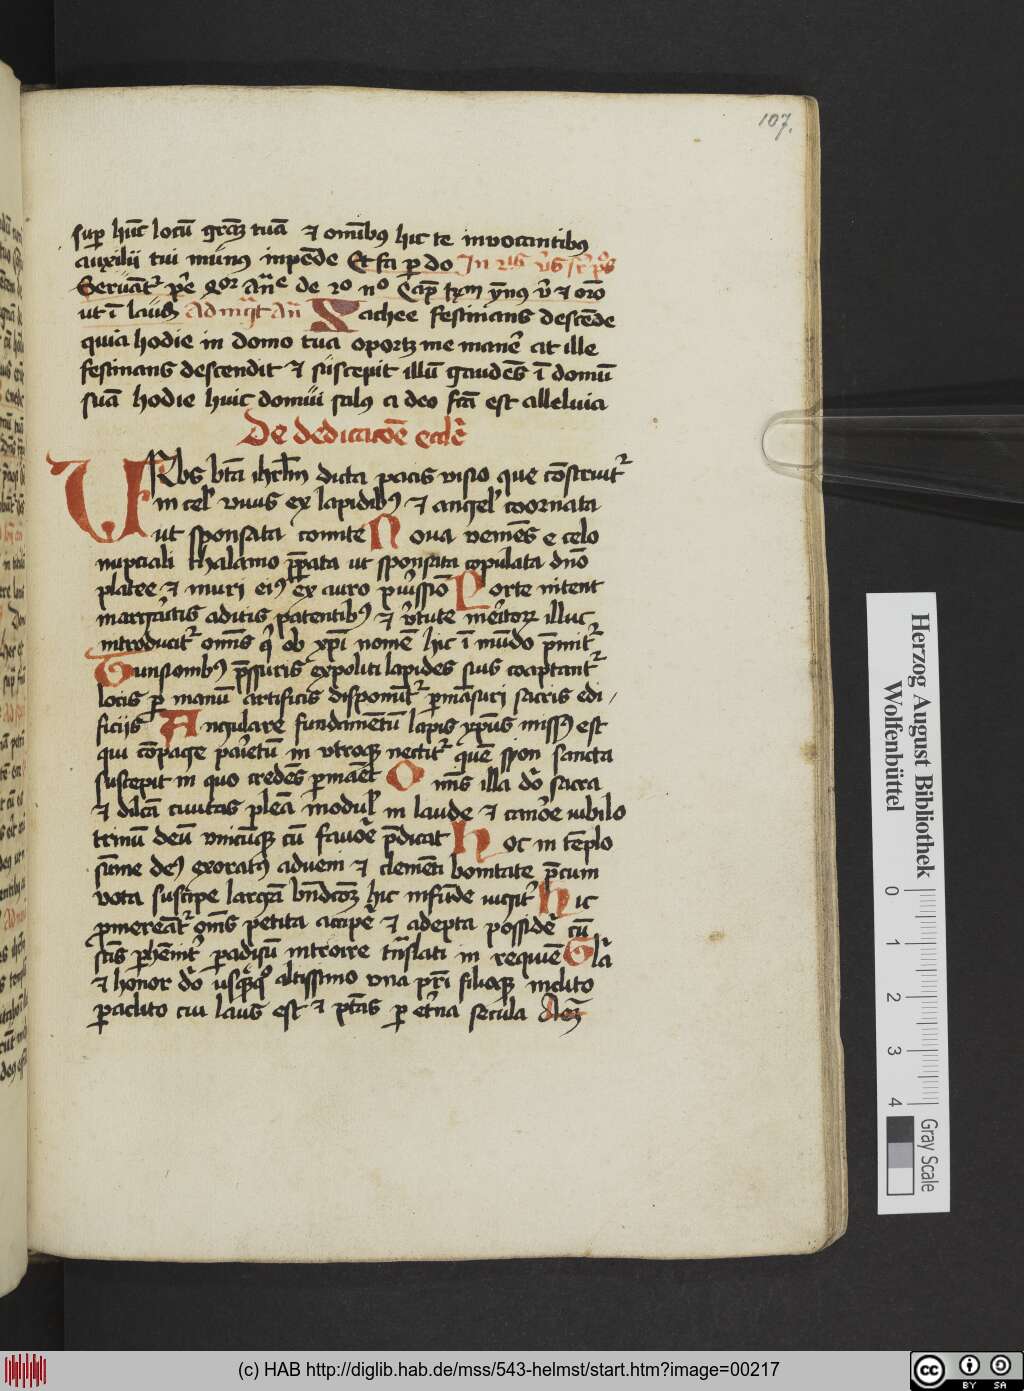 107.
sup hūc locū grāz tuā ⁊ omībus hic te invocantibus
auxilii tui munus inpēde Et fa p do In
Servāt pre de ro no Cap ymnus v ⁊ oro
ut ī laud Ad An Zachee festinans descēde
quia hodie in domo tua oportz me manē at ille
festinans descendit ⁊ suscepit illū gaudēs ī domū
suā hodie huic domui salus a deo fcā est alleluia
De dedicacōe eccle
URbs btā ihrlm dicta pacis visio que cōstruit
in cel vivus ex lapidibus ⁊ angel coornata
ut sponsata comite Nova veniēs e celo
nupciali thalamo ppata ut sponsata copulata dno
platee ⁊ muri eius ex auro purissio Porte nitent
margaritis aditis patentibus ⁊ vtute meritor illuc
introducit omīs q ob xpi nomē hic ī mūdo pmit
Tunsionibus pssuris expoliti lapides suis coaptant
locis p manū artificis disponūt pmāsuri sacris edi
ficiis Angulare fundamētū lapis xpus missus est
qui cōpage parietū in utroq nectit quē syon sancta
suscepit in quo credēs pmāet Omīs illa do sacra
⁊ dilcā civitas plēa modul in laude ⁊ canore iubilo
trinū deū unicūq cū favore pdicat Hoc in tēplo
sūme deus exoratus adveni ⁊ clemēti bonitate pcum
vota suscipe largā bndcōez hic infūde iugit Hic
pmereāt omīs petita accipe ⁊ adepta posside cū
scis phēnit padisū introire tnslati in requiē Gla
⁊ honor do usqq altissimo una pri filioq inclito
paclito cui laus est ⁊ ptās p etna secula Amē
Herzog August Bibliothek
Wolfenbüttel
0 1 2 3 4
Gray Scale
(c) HAB http://diglib.hab.de/mss/543-helmst/start.htm?image=00217
cc BY SA